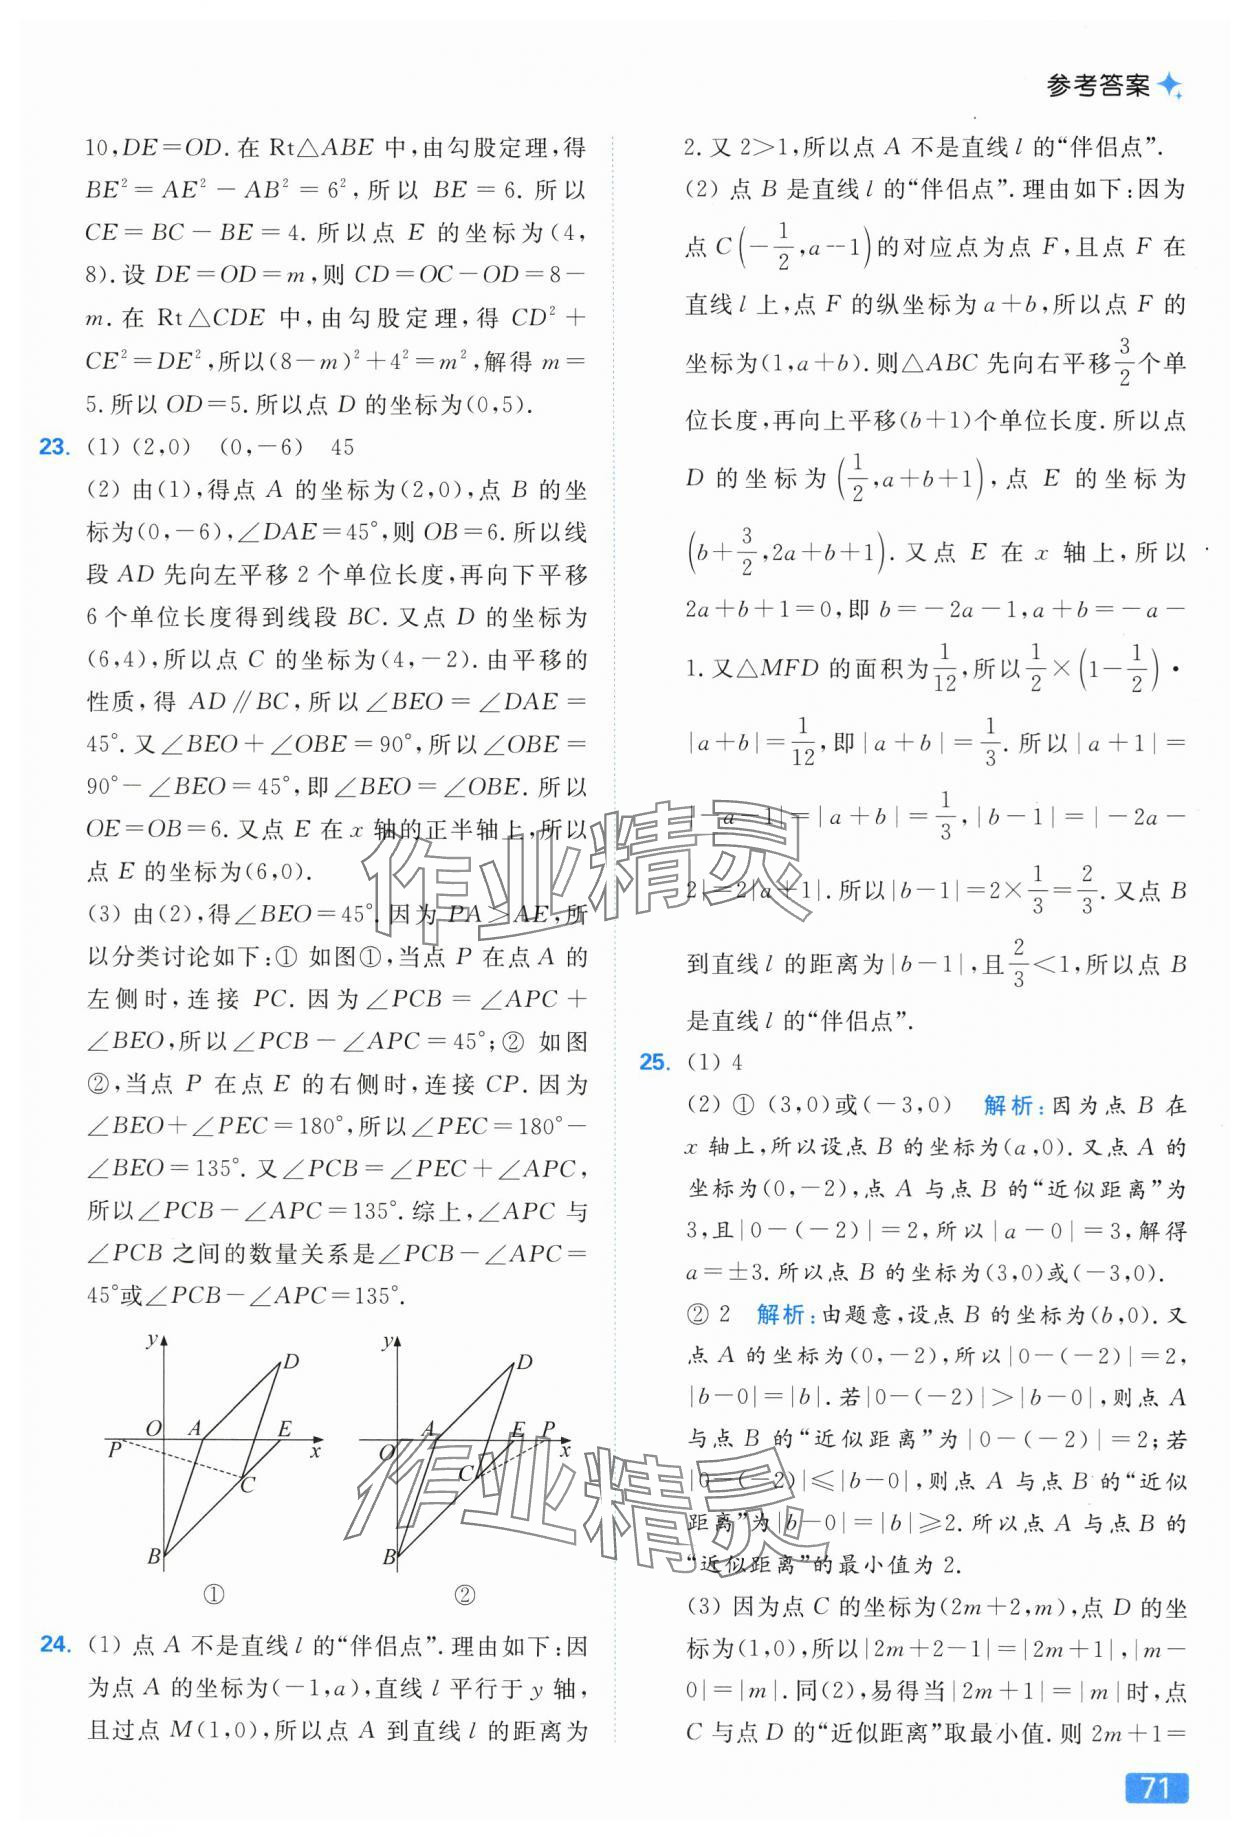 参考答案
10,DE=OD.在 Rt△ABE 中,由勾股定理,得
BE²=AE²-AB²=6²,所以 BE=6.所以
CE=BC-BE=4.所以点 E 的坐标为(4,
8).设 DE=OD=m,则 CD=OC-OD=8-
m.在 Rt△CDE 中,由勾股定理,得 CD²+
CE²=DE²,所以(8-m)²+4²=m²,解得 m=
5.所以 OD=5.所以点 D 的坐标为(0,5).
23. (1) (2,0) (0,-6) 45
(2) 由(1),得点 A 的坐标为(2,0),点 B 的坐
标为(0,-6),∠DAE=45°,则 OB=6.所以线
段 AD 先向左平移 2 个单位长度,再向下平移
6 个单位长度得到线段 BC.又点 D 的坐标为
(6,4),所以点 C 的坐标为(4,-2).由平移的
性质,得 AD∥BC,所以∠BEO=∠DAE=
45°.又∠BEO+∠OBE=90°,所以∠OBE=
90°-∠BEO=45°,即∠BEO=∠OBE.所以
OE=OB=6.又点 E 在 x 轴的正半轴上,所以
点 E 的坐标为(6,0).
(3) 由(2),得∠BEO=45°.因为 PA>AE,所
以分类讨论如下:① 如图①,当点 P 在点 A 的
左侧时,连接 PC.因为∠PCB=∠APC+
∠BEO,所以∠PCB-∠APC=45°;② 如图
②,当点 P 在点 E 的右侧时,连接 CP.因为
∠BEO+∠PEC=180°,所以∠PEC=180°-
∠BEO=135°.又∠PCB=∠PEC+∠APC,
所以∠PCB-∠APC=135°.综上,∠APC 与
∠PCB 之间的数量关系是∠PCB-∠APC=
45°或∠PCB-∠APC=135°.
y D O A E P x C B
①
y D A E P O x C B
②
24. (1) 点 A 不是直线 l 的“伴侣点”.理由如下:因
为点 A 的坐标为(-1,a),直线 l 平行于 y 轴,
且过点 M(1,0),所以点 A 到直线 l 的距离为
2.又 2>1,所以点 A 不是直线 l 的“伴侣点”.
(2) 点 B 是直线 l 的“伴侣点”.理由如下:因为
点 C(-1/2,a-1)的对应点为点 F,且点 F 在
直线 l 上,点 F 的纵坐标为 a+b,所以点 F 的
坐标为(1,a+b).则△ABC 先向右平移3/2个单
位长度,再向上平移(b+1)个单位长度.所以点
D 的坐标为(1/2,a+b+1),点 E 的坐标为
(b+3/2,2a+b+1).又点 E 在 x 轴上,所以
2a+b+1=0,即 b=-2a-1,a+b=-a-
1.又△MFD 的面积为1/12,所以1/2×(1-1/2)·
|a+b|=1/12,即|a+b|=1/3.所以|a+1|=
|-a-1|=|a+b|=1/3,|b-1|=|-2a-
2|=2|a+1|.所以|b-1|=2×1/3=2/3.又点 B
到直线 l 的距离为|b-1|,且2/3<1,所以点 B
是直线 l 的“伴侣点”.
25. (1) 4
(2) ① (3,0)或(-3,0) 解析:因为点 B 在
x 轴上,所以设点 B 的坐标为(a,0).又点 A 的
坐标为(0,-2),点 A 与点 B 的“近似距离”为
3,且|0-(-2)|=2,所以|a-0|=3,解得
a=±3.所以点 B 的坐标为(3,0)或(-3,0).
② 2 解析:由题意,设点 B 的坐标为(b,0).又
点 A 的坐标为(0,-2),所以|0-(-2)|=2,
|b-0|=|b|.若|0-(-2)|>|b-0|,则点 A
与点 B 的“近似距离”为|0-(-2)|=2;若
|0-(-2)|≤|b-0|,则点 A 与点 B 的“近似
距离”为|b-0|=|b|≥2.所以点 A 与点 B 的
“近似距离”的最小值为 2.
(3) 因为点 C 的坐标为(2m+2,m),点 D 的坐
标为(1,0),所以|2m+2-1|=|2m+1|,|m-
0|=|m|.同(2),易得当|2m+1|=|m|时,点
C 与点 D 的“近似距离”取最小值.则 2m+1=
作业精灵
作业精灵
71